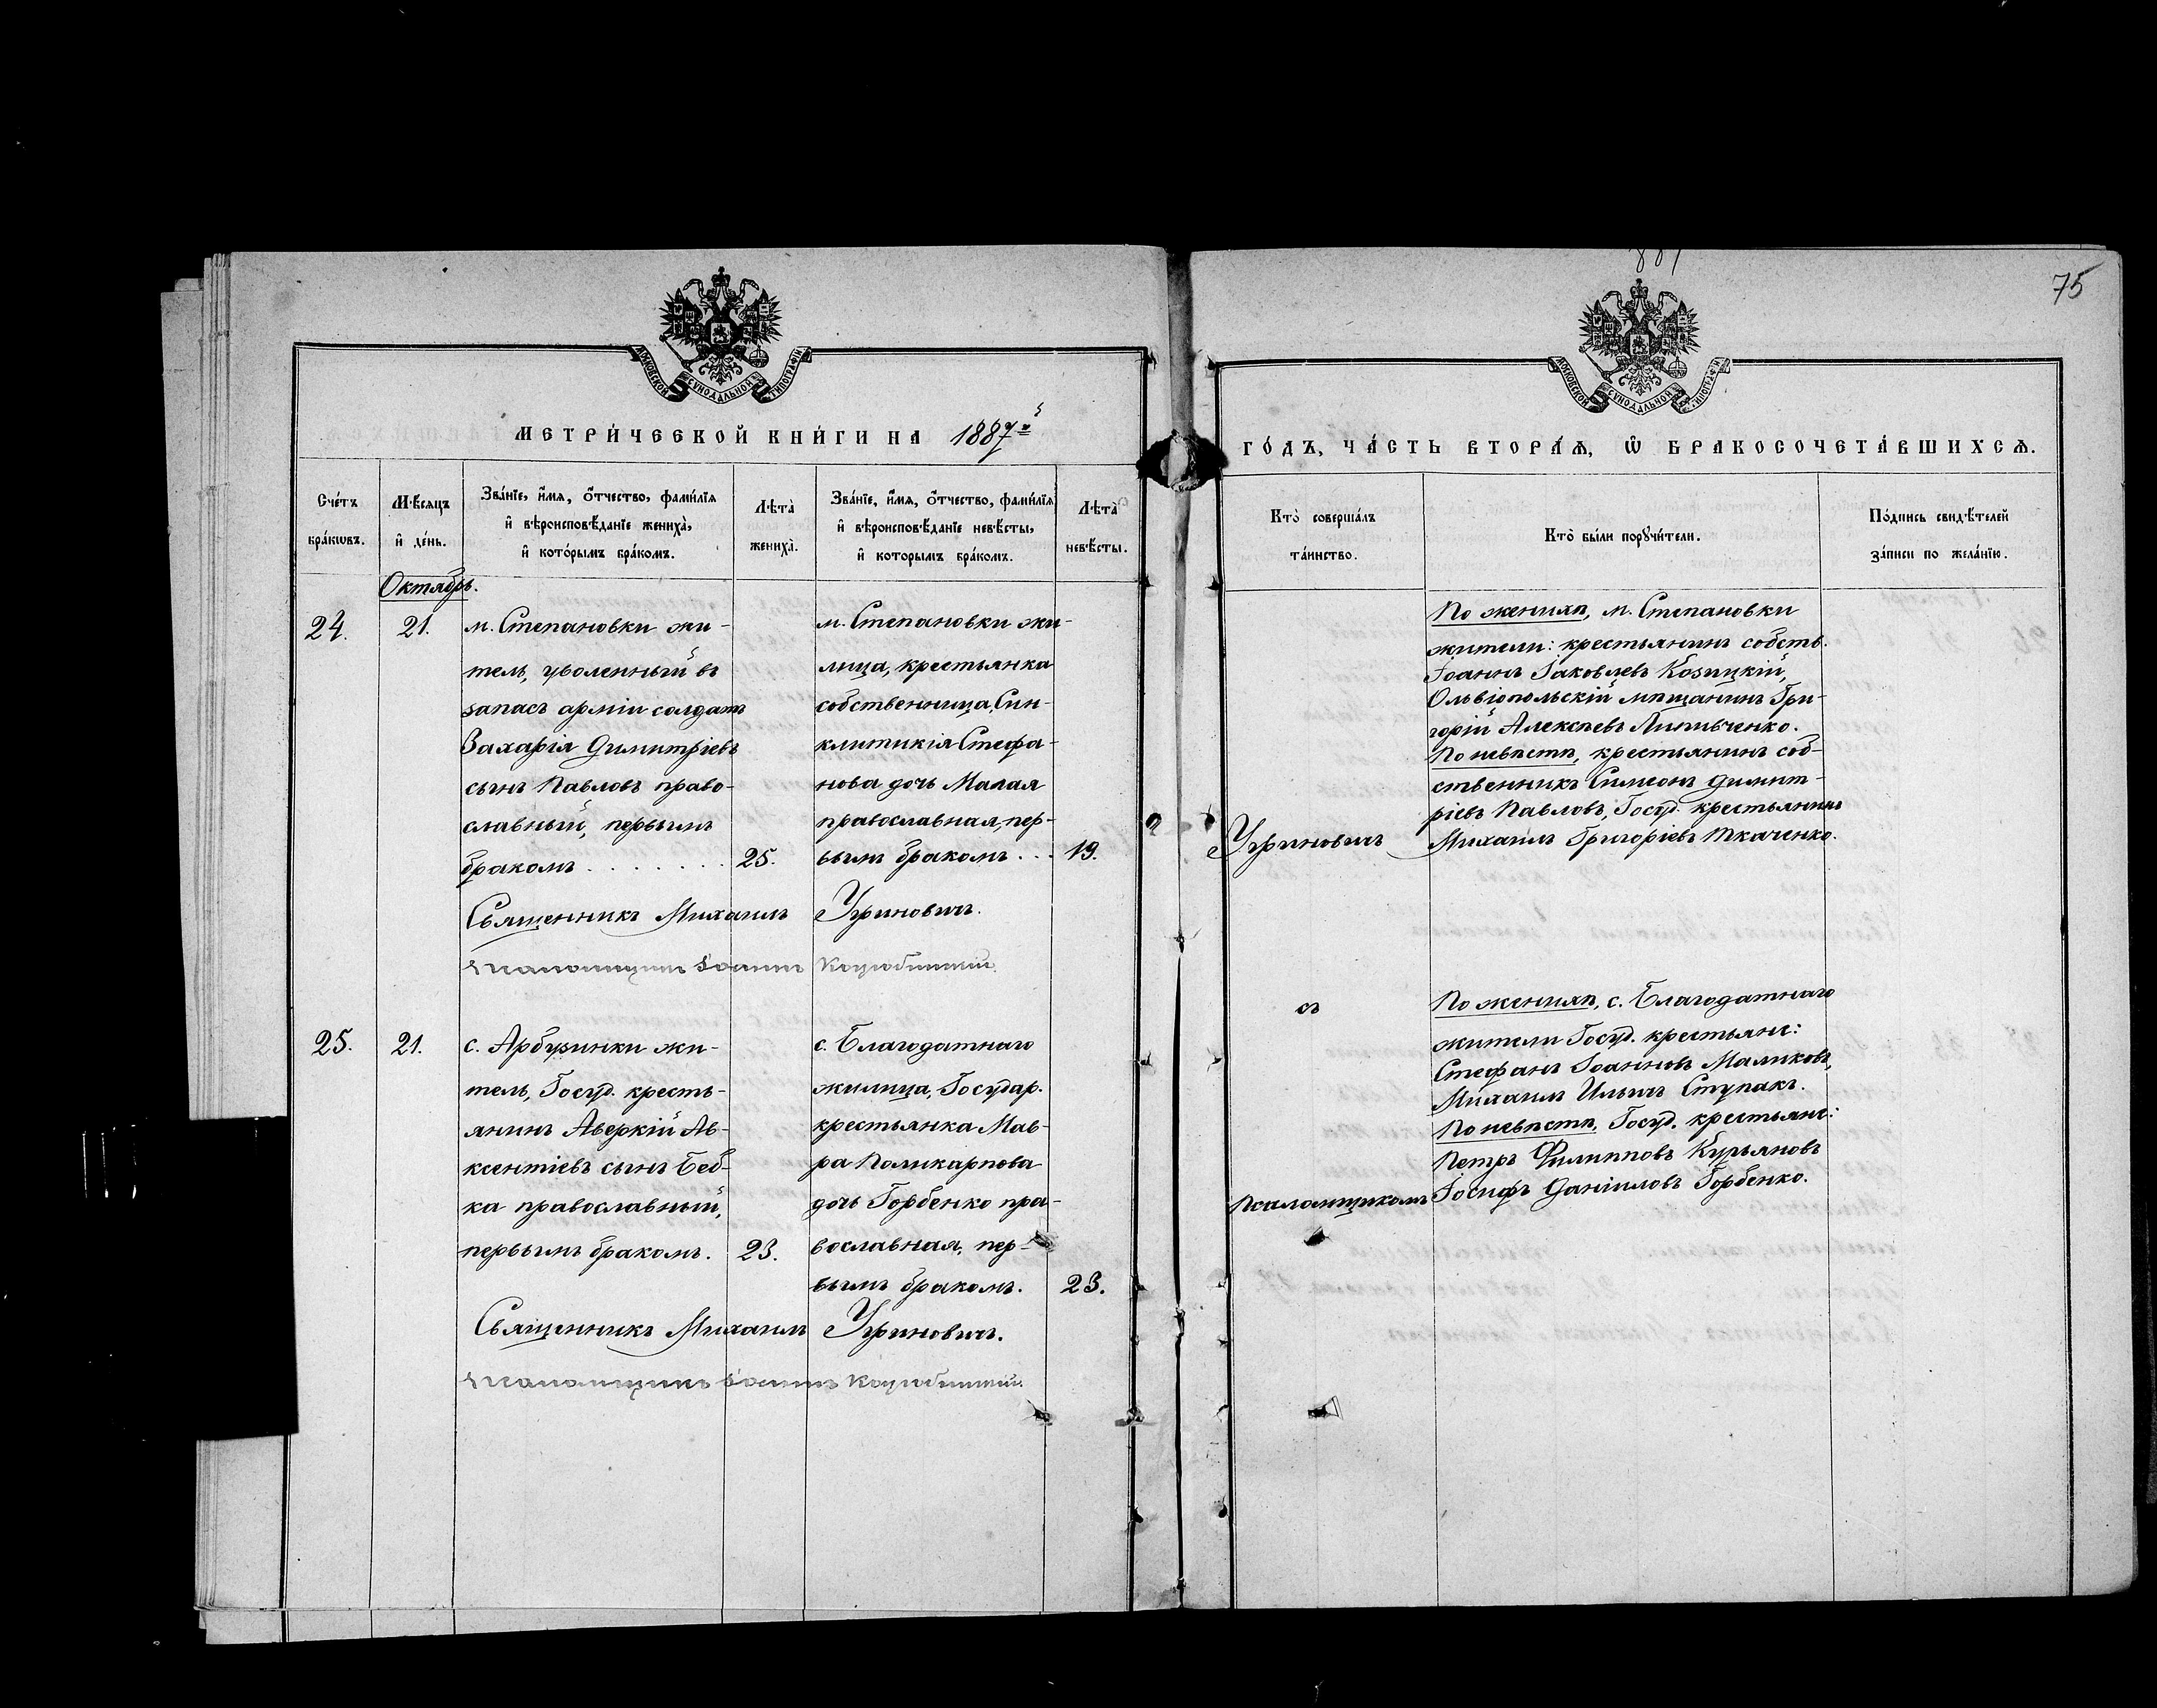 75
МОСКОВСКОЙ СѴНОДАЛЬНОЙ ТИПОГРАФІИ
МОСКОВСКОЙ СѴНОДАЛЬНОЙ ТИПОГРАФІИ
МЕТРИ́ЧЕСКОЙ КНИ́ГИ НА 1887й
ГО́ДЪ, ЧА́СТЬ ВТОРА́Ѧ, Ѡ҆ БРАКОСОЧЕТА́ВШИХСѦ.
Сче́тъ бра́кѡвъ.
Мѣ́сяцъ и҆ де́нь.
Зва́нїе, и҆́мѧ, ѻ҆́тчество, фами́лїѧ
и҆ вѣроисповѣ́данїе жениха̀,
и҆ кото́рымъ бра́комъ.
Лѣта̀ жениха̀.
Зва́нїе, и҆́мѧ, ѻ҆́тчество, фами́лїѧ
и҆ вѣроисповѣ́данїе невѣ́сты,
и҆ которымъ бра́комъ.
Лѣта̀ невѣ́сты.
Кто̀ соверша́лъ
та́инство.
Кто̀ бы́ли порꙋчи́тели.
По́дпись свидѣ́телей
за́писи по жела́нїю.
Октябрь.
24.
21.
м. Степановки жи-
тель, уволенный въ
запасъ арміи солдатъ
Захарія Димитріевъ
сынъ Павловъ право-
славный, первымъ
бракомъ . . . . . . . 25.
м. Степановки жи-
лица, крестьянка
собственница, Син-
клитикія Стефа-
нова дочь Малая
православная, пер-
вымъ бракомъ . . . 19.
Священникъ Михаилъ Угриновичъ.
Псаломщикъ Іоаннъ
Угриновичъ
По женихѣ, м. Степановки
жители: крестьянинъ собств.
Іоаннъ Іаковлевъ Козицкій,
Ольвіопольскій мѣщанинъ Гри-
горій Алексѣевъ
По невѣстѣ, крестьянинъ соб-
ственникъ Симеонъ Димит-
ріевъ Павловъ, Госуд. крестьянинъ
Михаилъ Григоріевъ Ткаченко.
25.
21.
с. Арбузинки жи-
тель, Госуд. кресть-
янинъ Аверкій Ав-
ксентіевъ сынъ Беб-
ка православный,
первымъ бракомъ. 23.
с. Благодатнаго
жилица, Государ.
крестьянка Мав-
ра Поликарпова
дочь Горбенко пра-
вославная, пер-
вымъ бракомъ. 23.
Священникъ Михаилъ Угриновичъ.
Псаломщикъ Іоаннъ
съ
Псаломщикомъ
По женихѣ, с. Благодатнаго
жители Госуд. крестьяне:
Стефанъ Іоанновъ Маликовъ,
Михаилъ Ильичъ Ступакъ.
По невѣстѣ, Госуд. крестьяне:
Петръ Филипповъ Курьяновъ
Іосифъ Даніиловъ Горбенко.